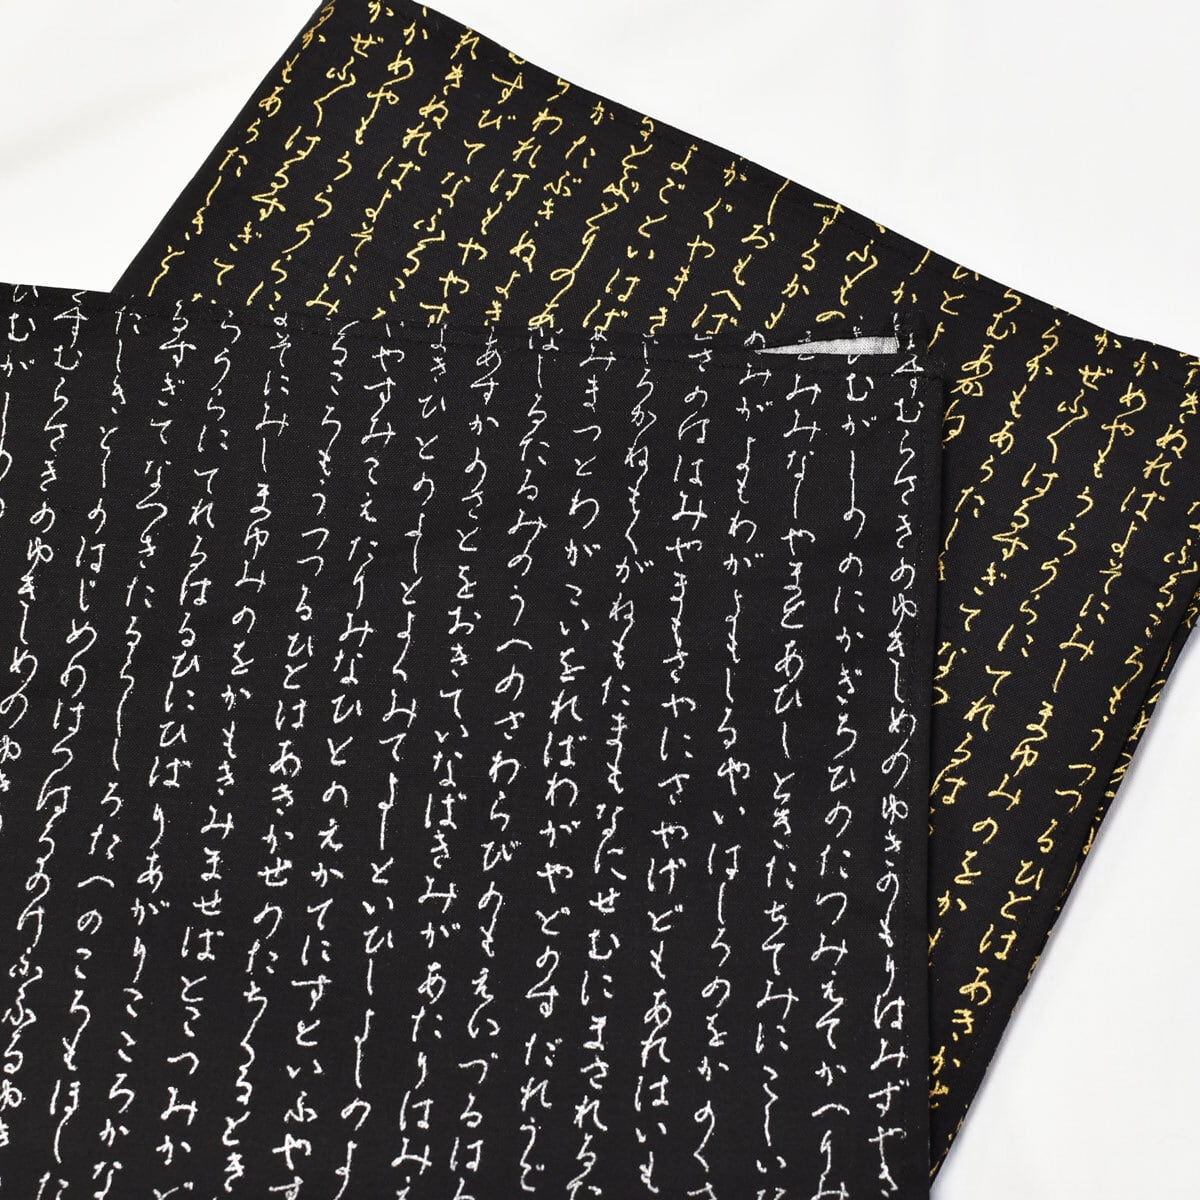 すむらさきのゆきしめのゆきのもりはみずやき
むがしののにかぎろひのたつみえてかへりみ
みみなしやまとあひしときたちてみにこしい
みがよもわがよもしるやいはしろのをかのく
さのははみやまもさやにさやげどもあれはいも
しろかねもくがねもたまもなにせむにまされるた
みまつとわがこいをればわがやどのすだれうご
はしるたるみのうへのさわらびのもえいづるは
あすかのさとをおきていなばきみがあたりはみえ
きひとのよしとよくみてよしといひしよしのよ
やすみこえたりみなひとのえかてにすといふやす
るころもうつつるひとはあきかぜのたちるとき
よそにみしまゆみのをかもきみませばとこつみかど
うらうらにてれるはるひにひばりあがりこころかな
るすぎてなつきたるらししろたへのころもほした
たしきとしのはじめのはつはるのけふふるゆき
すむらさきのゆきしめのゆき
むが
ふるころもうつつるひとはあきか
きぬればよそにみしまゆみのをかも
かめやもうらうらにてれるは
ぜふくはるすぎてなつ
かもあらたしき
むあかね
するかも
しおもへば
がぐやま
よどといはば
とぶとりのあ
たぶきぬよき
われはもややす
すびてなふるころ
きぬればよそにみ
かめやもうらうらに
ぜふくはるすぎて
かもあらたしきと